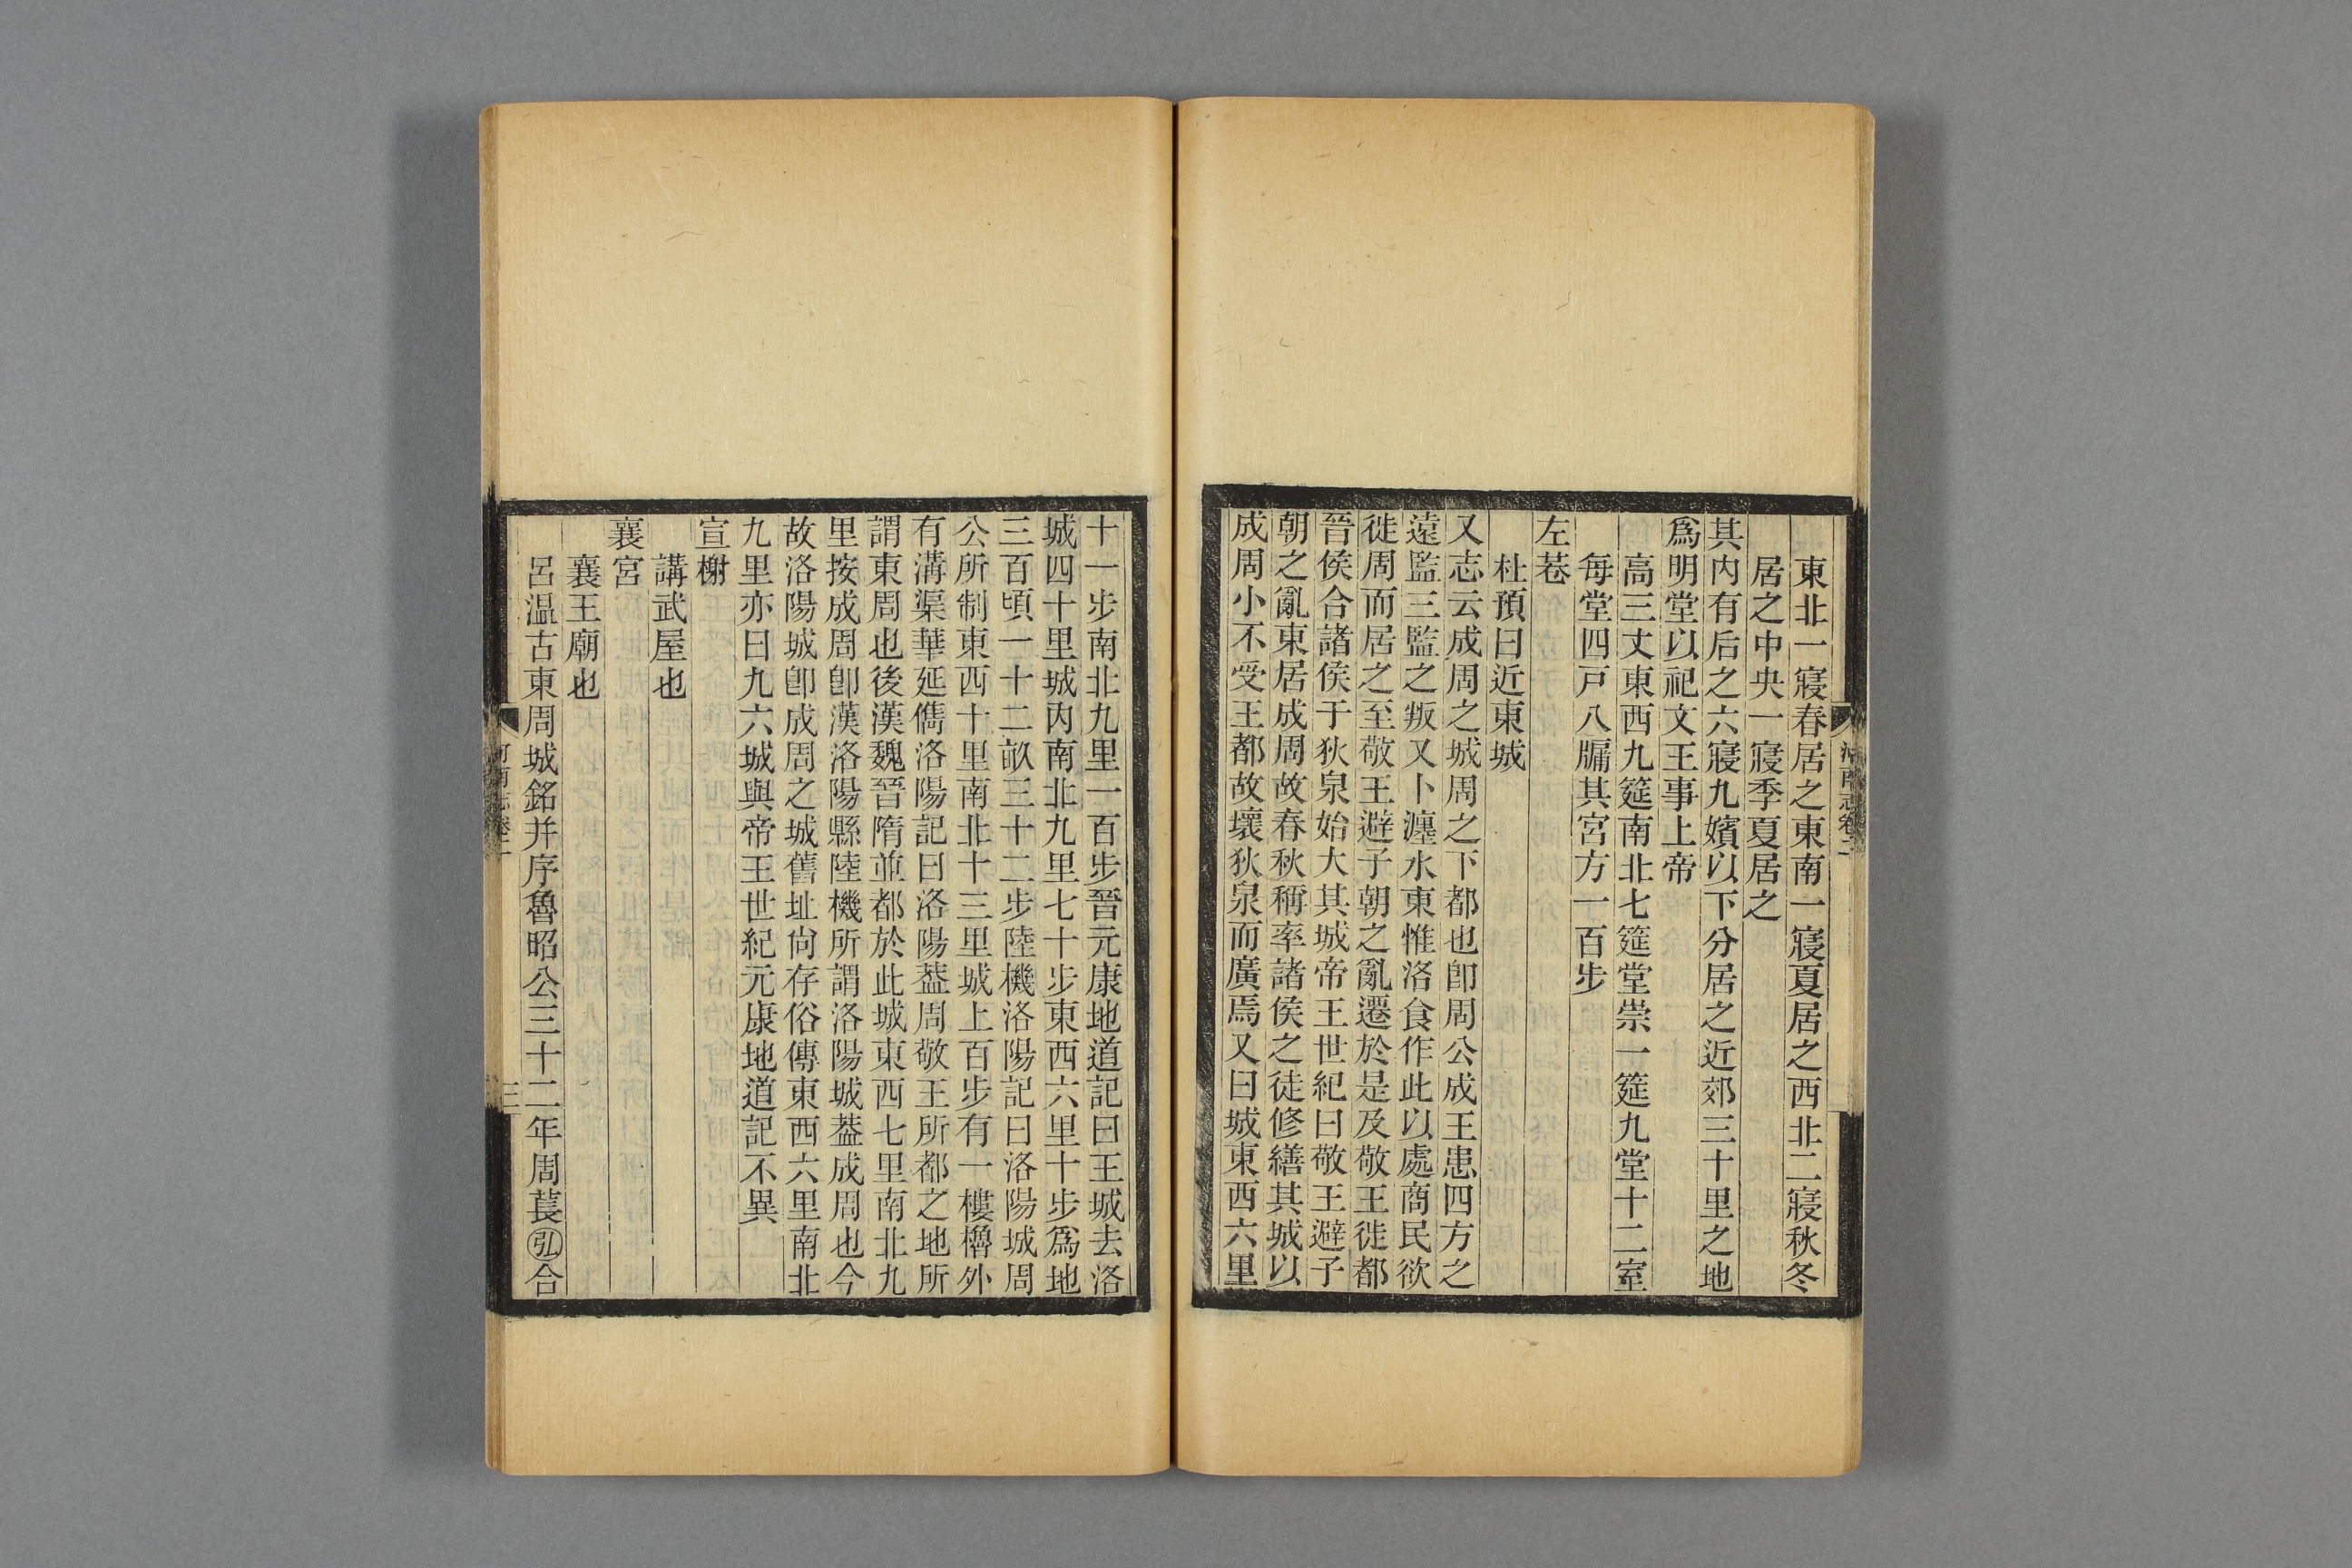 東北一寢春居之東南一寢夏居之西北二寢秋冬
居之中央一寢季夏居之
其内有后之六寢九嬪以下分居之近郊三十里之地
爲明堂以祀文王事上帝
高三丈東西九筵南北七筵堂崇一筵九堂十二室
每堂四戸八牖其宮方一百步
左巷
杜預曰近東城
又志云成周之城周之下都也卽周公成王患四方之
遠監三監之叛又卜瀍水東惟洛食作此以處商民欲
徙周而居之至敬王避子朝之亂遷於是及敬王徙都
晉侯合諸侯于狄泉始大其城帝王世紀曰敬王避子
朝之亂東居成周故春秋稱率諸侯之徒修繕其城以
成周小不受王都故壞狄泉而廣焉又曰城東西六里
十一步南北九里一百步晉元康地道記曰王城去洛
城四十里城内南北九里七十步東西六里十步爲地
三百頃一十二畝三十二步陸機洛陽記曰洛陽城周
公所制東西十里南北十三里城上百步有一樓櫓外
有溝渠華延儁洛陽記曰洛陽葢周敬王所都之地所
謂東周也後漢魏晉隋並都於此城東西七里南北九
里按成周卽漢洛陽縣陸機所謂洛陽城葢成周也今
故洛陽城卽成周之城舊址尙存俗傳東西六里南北
九里亦曰九六城與帝王世紀元康地道記不異
宣榭
講武屋也
襄宮
襄王廟也
呂温古東周城銘并序魯昭公三十二年周萇弘合
河南志卷二
三